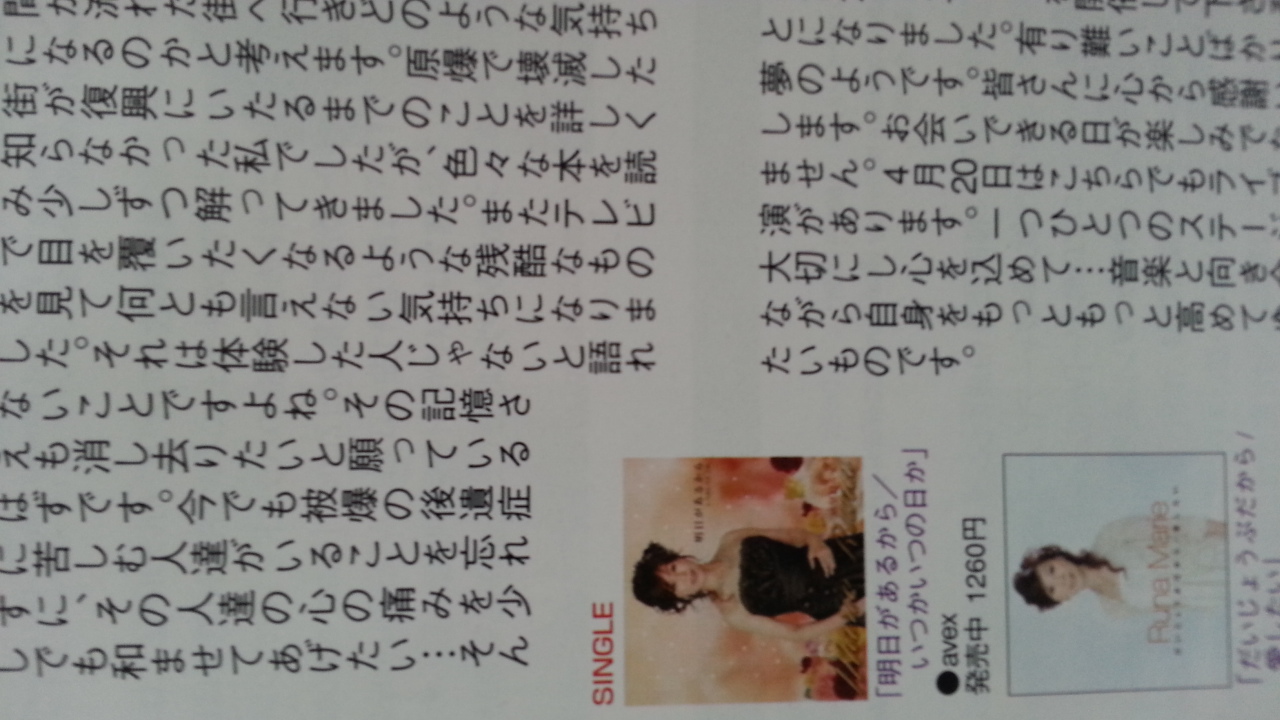 間が流れた街へ行きどのような気持ち
になるのかと考えます。原爆で壊滅した
街が復興にいたるまでのことを詳しく
知らなかった私でしたが、色々な本を読
み少しずつ解ってきました。またテレビ
で目を覆いたくなるような残酷なもの
を見て何とも言えない気持ちになりま
した。それは体験した人じゃないと語れ
ないことですよね。その記憶さ
えも消し去りたいと願っている
はずです。今でも被爆の後遺症
に苦しむ人達がいることを忘れ
ずに、その人達の心の痛みを少
しでも和ませてあげたい…そん
とになりました。有り難いことばかい
夢のようです。皆さんに心から感謝
します。お会いできる日が楽しみで
ません。4月20日はこちらでもライブ
演があります。一つひとつのステージ
大切にし心を込めて…音楽と向き
ながら自身をもっともっと高めて
たいものです。
SINGLE
明日があるから
「明日があるから／
いつかいつの日か」
●avex
発売中 1260円
Runa Marie
「だいじょうぶだから／
愛したい」